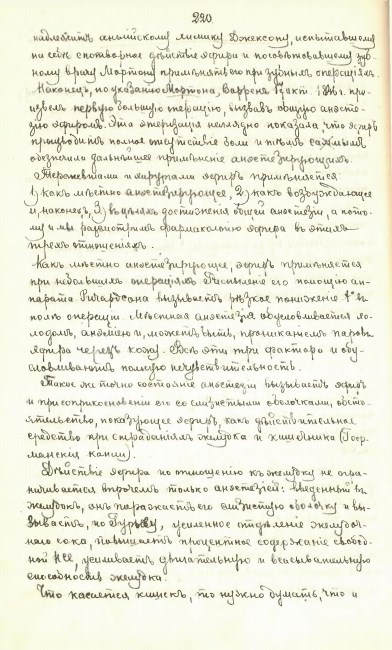 220
надлежитъ англійскому химику Джексону, испытавшему
на себѣ снотворное дѣйствіе эфира и посовѣтовавшему зуб-
ному врачу Мортону примѣнять его при зубныхъ операціяхъ.
Наконецъ, по указанію Мортона, Варренъ 17 окт. 1846 г. про-
извелъ первую большую операцію, вызвавъ общую анэсте-
зію эфиромъ. Эта операція наглядно показала, что эфиръ
производитъ полное отсутствіе боли и тѣмъ самымъ
обезпечило дальнѣйшее примѣненіе анэстезирующихъ.
Терапевтами и хирургами эфиръ примѣняется
1) какъ мѣстно анэстезирующее, 2) какъ возбуждающее
и, наконецъ, 3) въ цѣляхъ достиженія общей анэстезіи, а пото-
му и мы разсмотримъ фармакологію эфира въ этихъ
трехъ отношеніяхъ.
Какъ мѣстно анэстезирующее, эфиръ примѣняется
при небольшихъ операціяхъ. Распыленіе его помощью ап-
парата Ричардсона вызываетъ рѣзкое пониженіе t° въ
полѣ операціи. Мѣстная анэстезія обусловливается хо-
лодомъ, анэміею и, можетъ быть, прониканіемъ паровъ
эфира черезъ кожу. Всѣ эти три фактора и обу-
словливаютъ полную нечувствительность.
Такое же точно состояніе анэстезіи вызываетъ эфиръ
и при соприкосновеніи его со слизистыми оболочками, обсто-
ятельство, показующее эфиръ, какъ дѣйствительное
средство при страданіяхъ желудка и кишечника (Гофф-
манскія капли).
Дѣйствіе эфира по отношенію къ желудку не огра-
ничивается впрочемъ только анэстезіей: введенный въ
желудокъ, онъ поражаетъ его слизистую оболочку и вы-
зываетъ, по Гурьеву, усиленное отдѣленіе желудоч-
наго сока, повышаетъ процентное содержаніе свобод-
ной HCl, усиливаетъ двигательную и всасывательную
способность желудка.
Что касается кишекъ, то нужно думать, что и